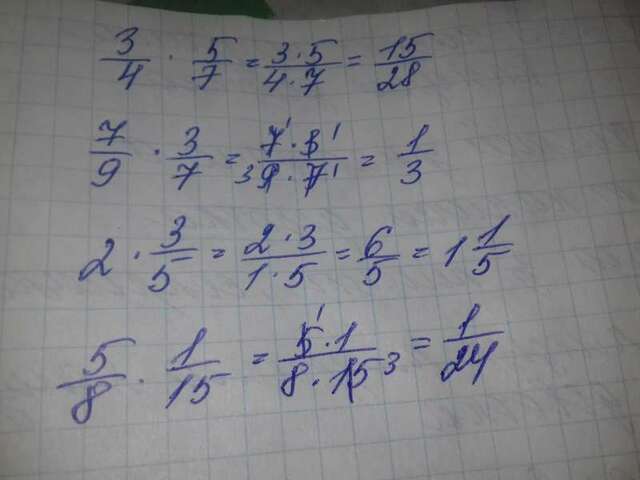 3/4 · 5/7 = 3·5/4·7 = 15/28
7/9 · 3/7 = 7¹·3¹/₃9·7¹ = 1/3
2 · 3/5 = 2·3/1·5 = 6/5 = 1 1/5
5/8 · 1/15 = 5¹·1/8·15₃ = 1/24